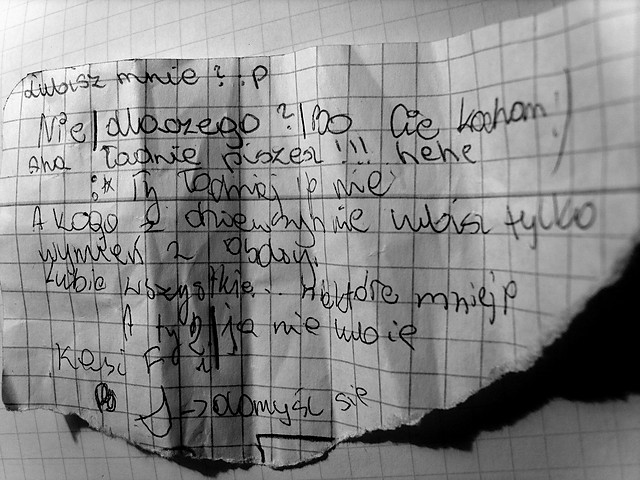 Lubisz mnie ? :p
Nie | dlaczego ? | Bo Cie kocham :)
aha ładnie piszesz !!! hehe
:* Ty ładniej :p nie
A kogo z dziewczyn nie lubisz tylko
wymień 2 osoby.
Lubie wszystkie... Niektóre mniej :p
A ty? | ja nie lubie
Kasi F i
J -> domyśl się